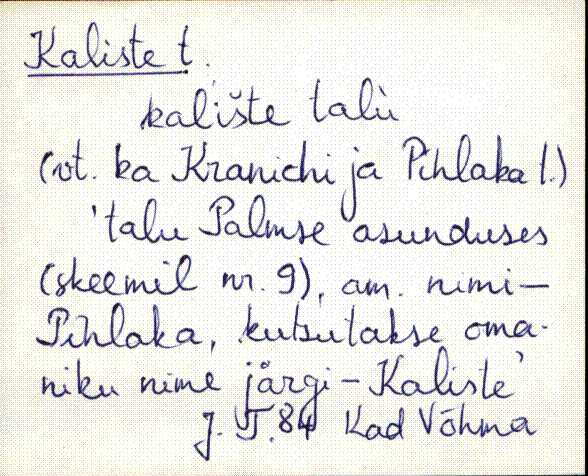 Kaliste t.
kalište talù
(vt. ka Kranichi ja Pihlaka t.)
'talu Palmse asunduses
(skeemil nr. 9), am. nimi –
Pihlaka, kutsutakse oma-
niku nime järgi – Kaliste'
J. T. 84 Kad Võhma